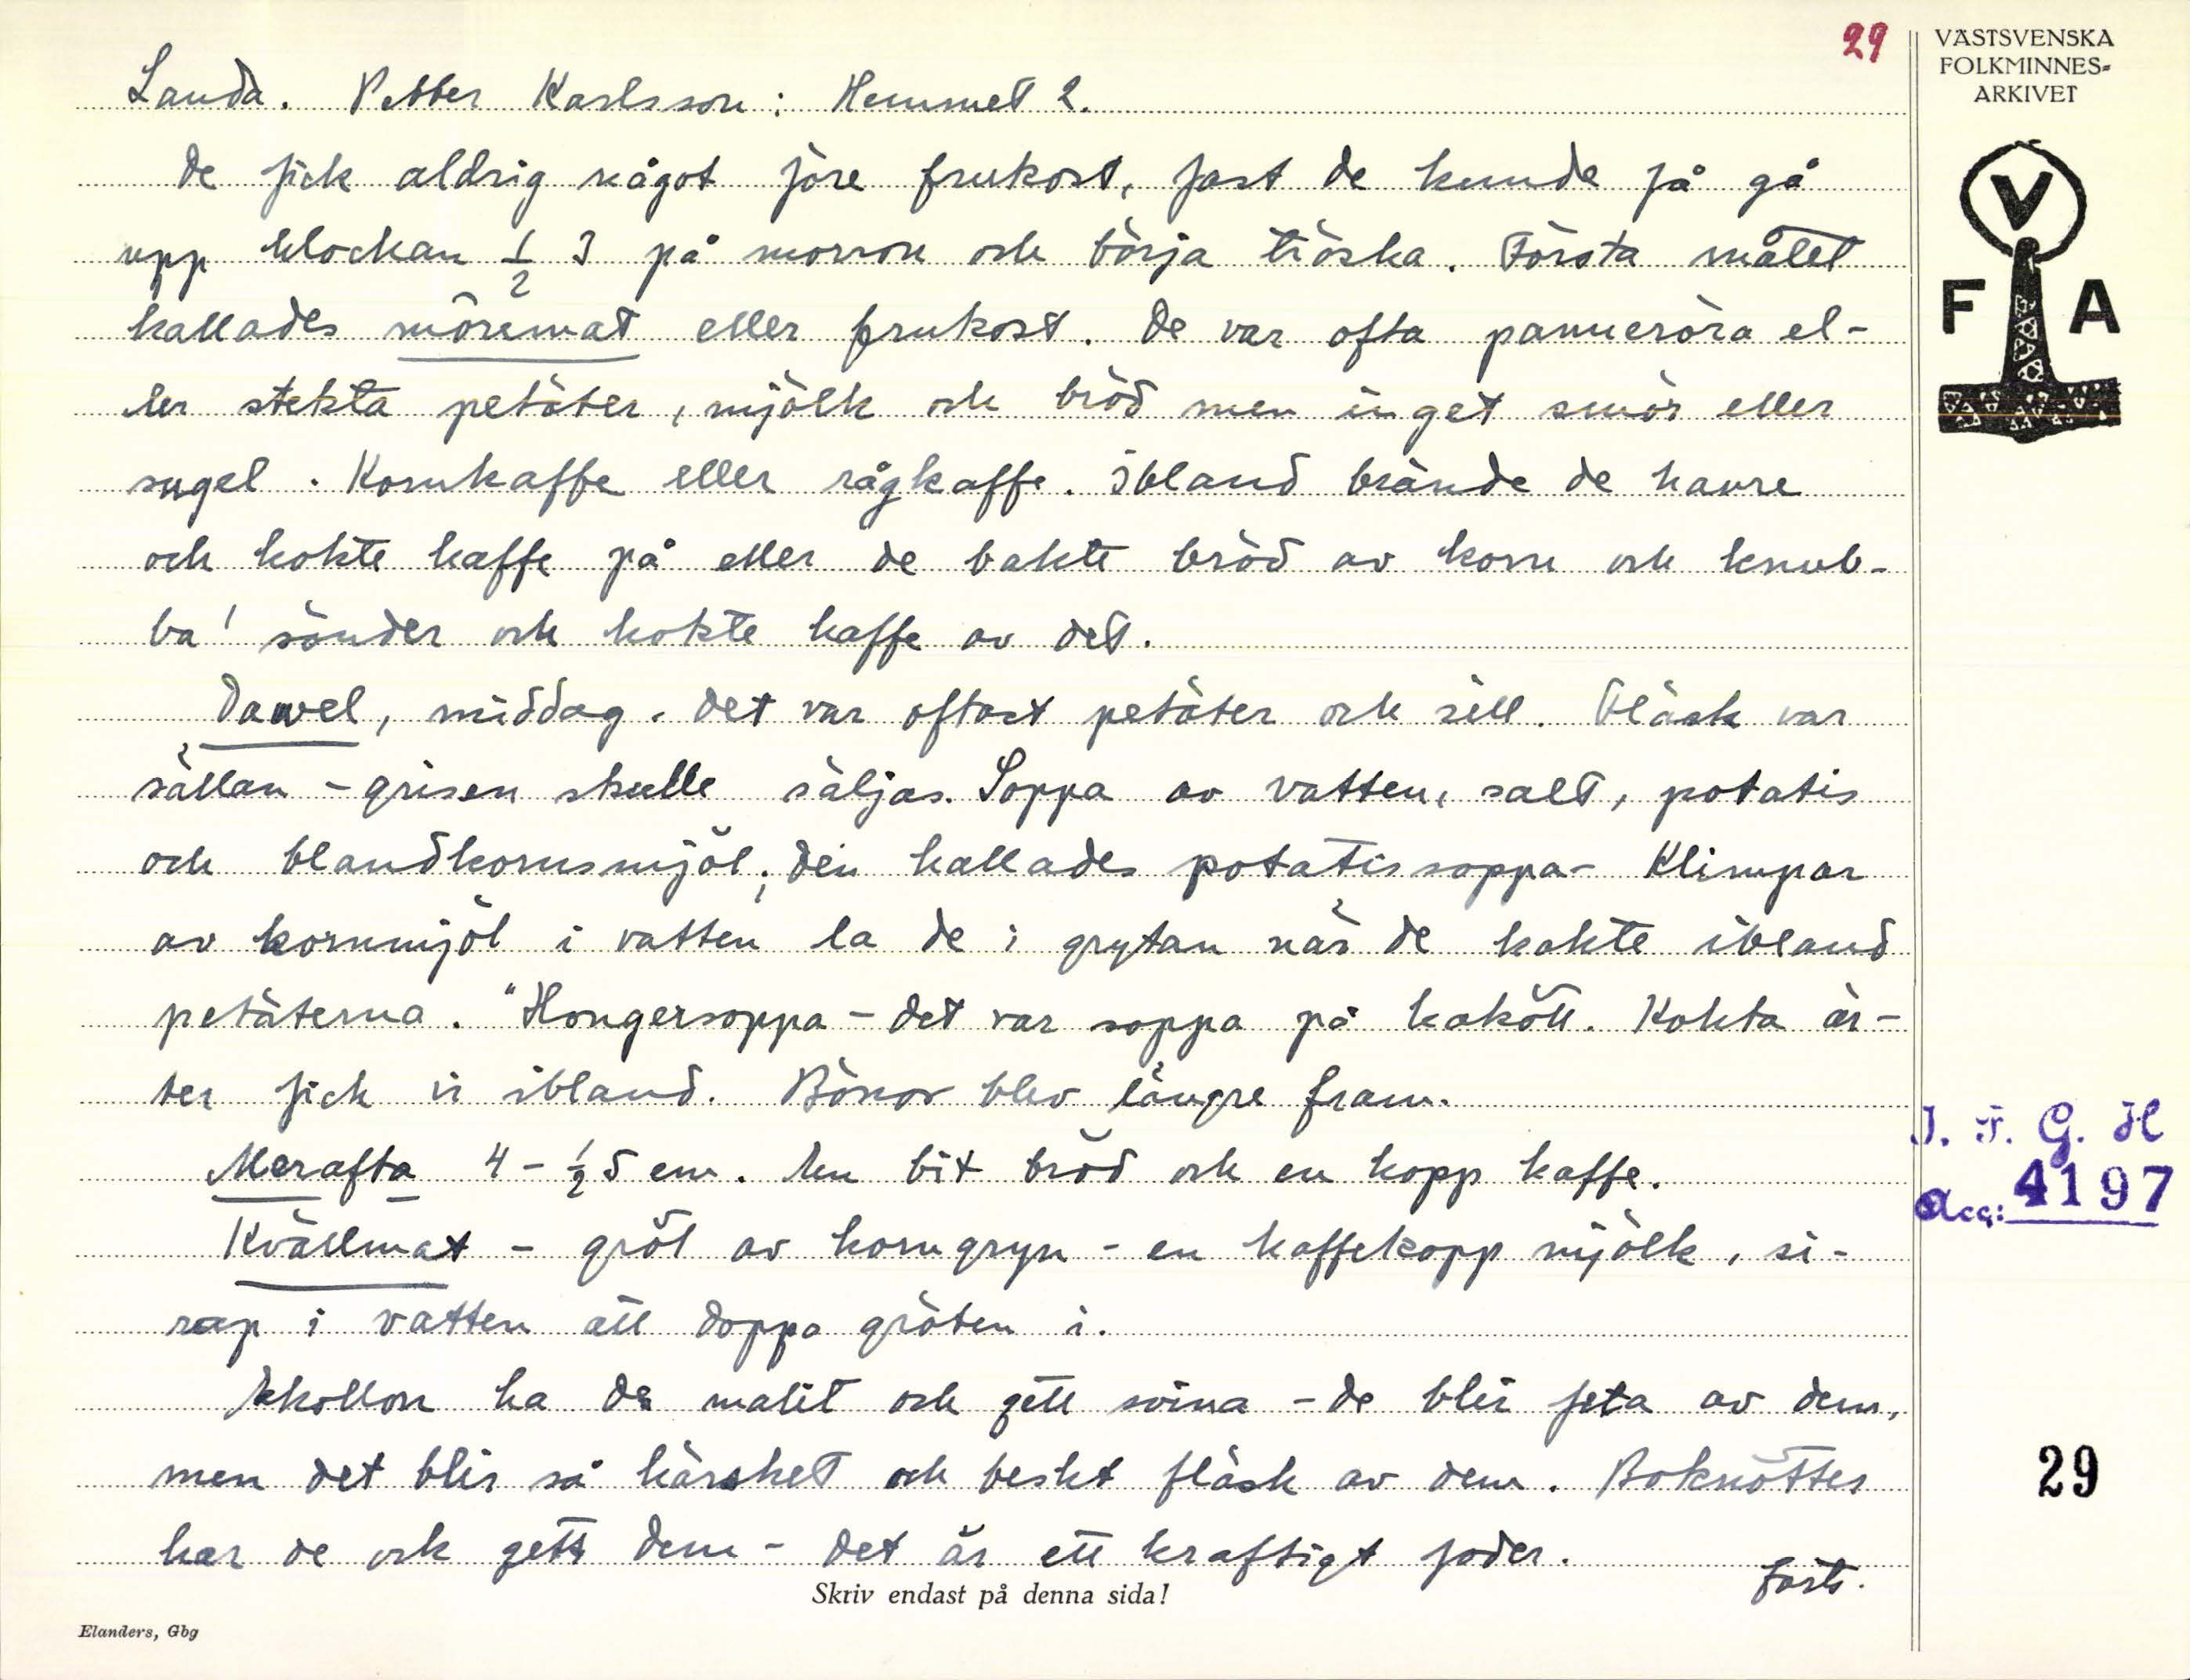 29
VÄSTSVENSKA
FOLKMINNES-
ARKIVET
V
F A
Landa. Petter Karlsson: Hemmet 2.
De fick aldrig något före frukost, fast de kunde få gå
upp klockan ½ 3 på morron och börja tröska. Första målet
kallades möremat eller frukost. De var ofta panneröra el-
ler stekta petäter, mjölk och bröd men inget smör eller
sugel. Kornkaffe eller rågkaffe. Ibland brände de havre
och kokte kaffe på eller de bakte bröd av korn och knub-
ba' sönder och kokte kaffe av det.
Dawel, middag. Det var oftast petäter och sill. Fläsk var
sällan - grisen skulle säljas. Soppa av vatten, salt, potatis
och blandkornsmjöl; den kallades potatissoppa- Klimpar
av kornmjöl i vatten la de i grytan när de kokte ibland
petäterna. "Hongersoppa - det var soppa på kokött. Kokta är-
ter fick vi ibland. Bönor blev längre fram.
Merafta 4 - ½ 5 em. En bit bröd och en kopp kaffe.
Kvällmat - gröt av korngryn - en kaffekopp mjölk, si-
rap i vatten att doppa gröten i.
Ekollon ha de malit och gett svina - de blir feta av dem,
men det blir så härsket och beskt fläsk av dem. Boknötter
har de ock gett dem - det är ett kraftigt foder.
Forts.
J. F. G. H
Acc: 4197
29
Skriv endast på denna sida!
Elanders, Gbg